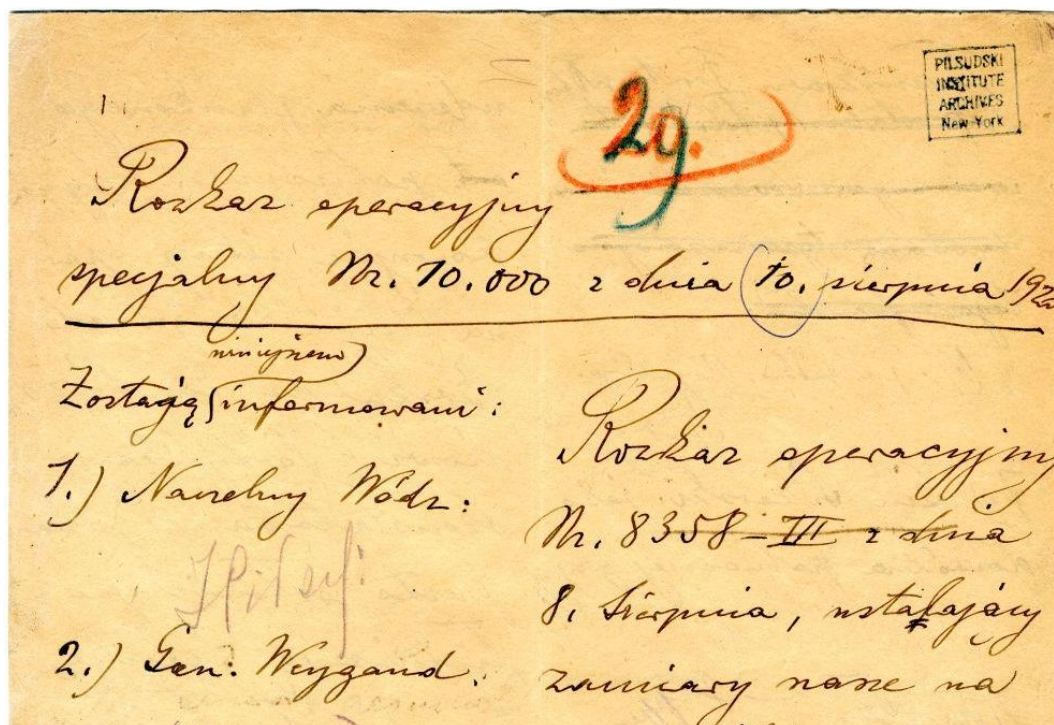 PILSUDSKI
INSTITUTE
ARCHIVES
New-York
29.
Rozkaz operacyjny
specjalny Nr. 10.000 z dnia 10. sierpnia 192
niniejszem
Zostają informowani:
1.) Naczelny Wódz:
2.) Gen: Weygand.
Rozkaz operacyjny
Nr. 8358-III z dnia
8. Sierpnia, ustalający
zamiary nasze na